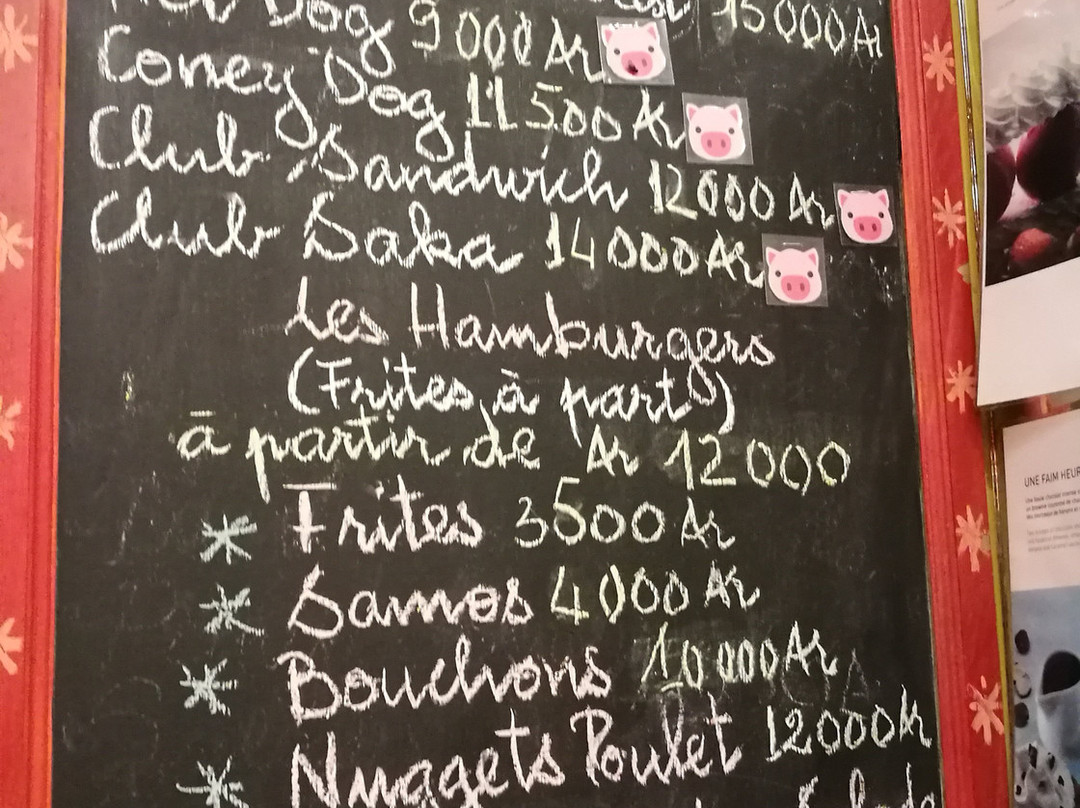 Dog 9000 Ar
15000 Ar
Coney Dog 11500 Ar
Club Sandwich 12000 Ar
Club Saka 14000 Ar
Les Hamburgers
(Frites à part)
à partir de Ar 12000
* Frites 3500 Ar
* Samos 4000 Ar
* Bouchons 10000 Ar
* Nuggets Poulet 12000 Ar
UNE FAIM HEUR